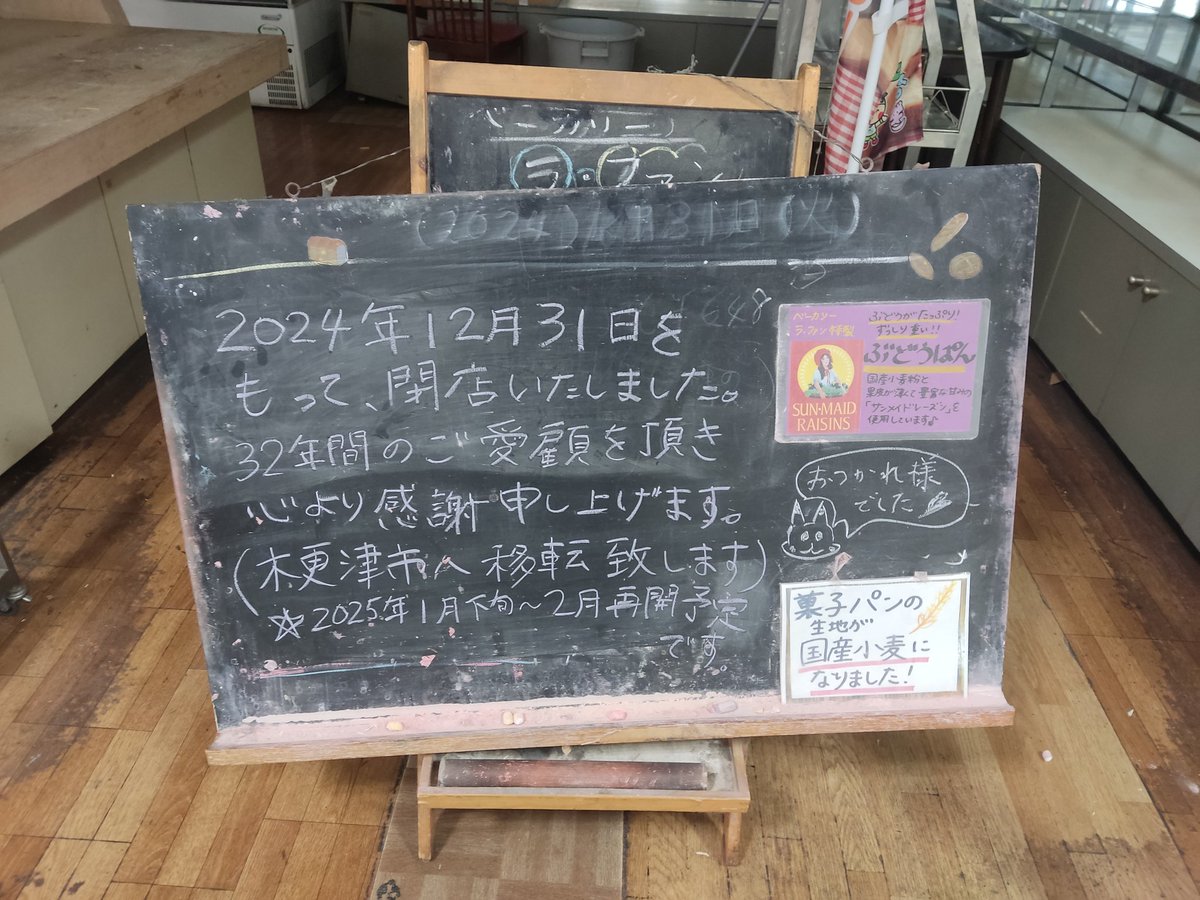 ベーカリー
ラ・ファン
(2024)12月31日(火)
2024年12月31日を
もって、閉店いたしました。
32年間のご愛顧を頂き
心より感謝申し上げます。
(木更津市へ移転致します)
☆2025年1月下旬～2月再開予定
です。
648
ベーカリー
ラ・ファン特製
ぶどうがたっぷり!
ずっしり重い!!
ぶどうぱん
国産小麦粉と
果皮が薄くて豊富な甘みの
「サンメイドレーズン」を
使用しています♪
SUN-MAID
RAISINS
おつかれ様
でした
菓子パンの
生地が
国産小麦に
なりました!